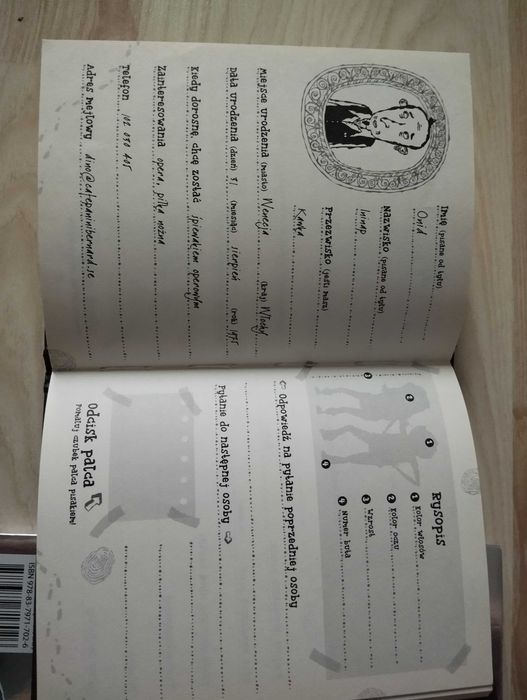 Imię (pisane od tyłu)
Onid
Nazwisko (pisane od tyłu)
Ininap
Przezwisko (jeśli masz)
Kawka
Miejsce urodzenia (miasto) Wenecja (kraj) Włochy
Data urodzenia (dzień) 31 (miesiąc) sierpień (rok) 1975
Kiedy dorosnę, chcę zostać śpiewakiem operowym
Zainteresowania opera, piłka nożna
Telefon 102 030 405
Adres mejlowy dino@cafepaninibernard.se
Rysopis
1 Kolor włosów
2 Kolor oczu
3 Wzrost
4 Numer buta
1
2
3
4
Odpowiedź na pytanie poprzedniej osoby
Pytanie do następnej osoby
Odcisk palca
Pomaluj czubek palca pisakiem!
ISBN 978-83-7971-702-6